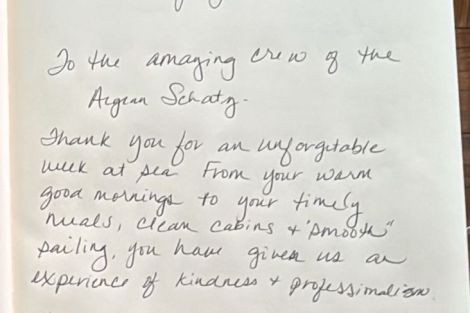 To the amazing crew of the
Aegean Schatz.
Thank you for an unforgetable
week at sea From your warm
good mornings to your timely
meals, clean cabins + "smooth"
sailing, you have given us an
experience of kindness + professionalism.